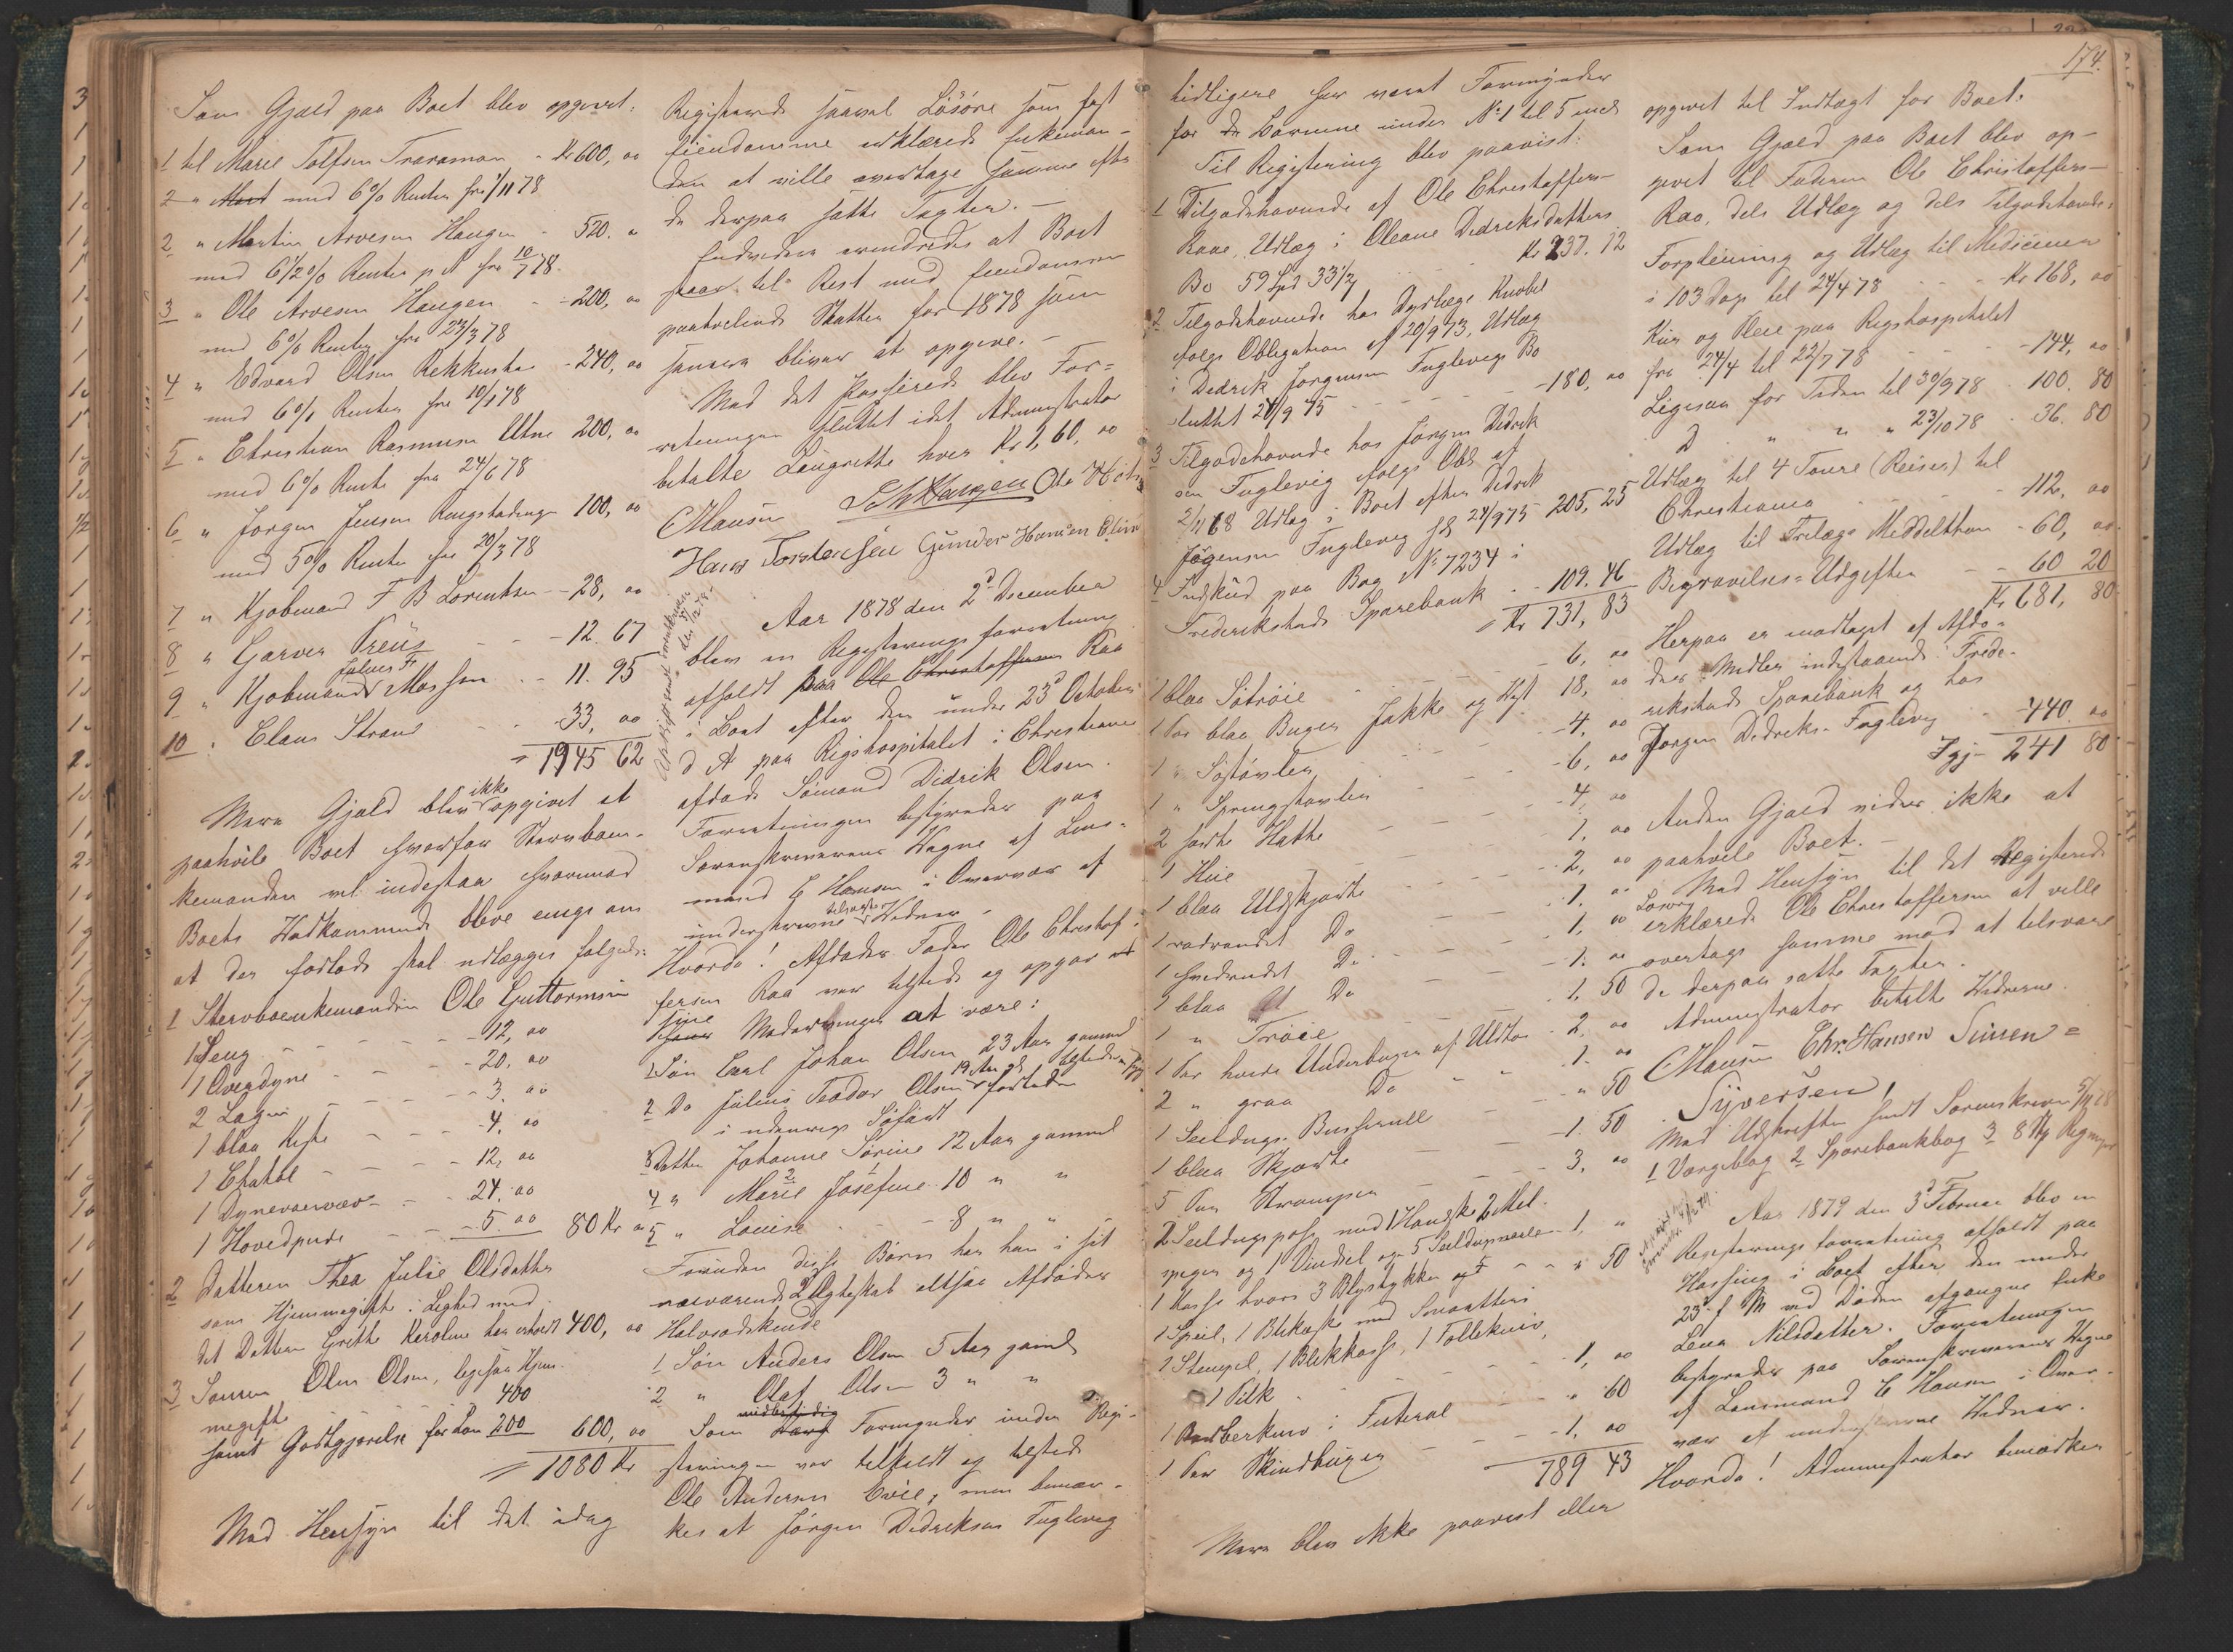 Som Gjæld paa Boet blev opgivet:
1 til Marie Tolfsen Traraman - Kr 600, 00
2 " med 6% Renter fra 1/11 78
2 " Martin Arvesen Haugen - 520. "
med 6 1/2 % Renter p A fra 10/7 78.
3 " Ole Arvesen Haugen - - 200, 00
med 6% Renter fra 23/3 78
4 " Edvard Olsen Rekkustad - 240, 00
med 6% Renter fra 10/1 78
5 " Christian Rasmusen Utne 200, 00
med 6% Rente fra 24/6 78
6 " Jørgen Jensen 100, 00
med 5% Rente fra 20/3 78
7 " Kjøbmand F B Lorentsen - 28, 00
8 " Garver Preüs - - - 12. 67
9 " Kjøbmand Julius Fr - 11. 95
10 " Claus Strand - - 33, 00
= 1945 62
Mere Gjæld blev ikke opgivet at
paahvile Boet hvorfor Stervboen-
kemanden vil indestaa hvormed
Boets Vedkommende bleve enige om
at der forlods skal udlægges følgende:
1 Stervboenkemanden Ole Guttormsen
1 Seng - - - - 12, 00
1 Overdyne - - - - 20, 00
2 Lagen - - - - 3. 00
1 blaa Kiste - - - 4, 00
1 Chatol - - - - 12, 00
1 Dynevaarvær - - 24, 00
1 Hovedpude - - - 5. 00 80 Kr "
2 Datteren Thea Julie Olsdatter
som Hjemmegifte i Lighed med
det Datteren Grethe Karoline har erholdt 400, 00
3 Sønnen Olen Olsen, ligesaa Hjem-
megifte - - - 400
samt Godtgjørelse for Løn 200 600, 00
= 1080 Kr
Med Hensyn til det idag
Registerede saavel Løsøre som fast
Eiendomme erklærede Enkeman-
den at ville overtage samme efter
de derpaa satte Taxter. -
Endvidere erindredes at Boet
staar til Rest med Eiendommen
paahvilende Skatter for 1878 som
senere bliver at opgive. -
Med det Passerede blev For=
retningen sluttet idet Administrator
betalte Laugrette hver Kr 1, 60, 00
CHansen Ole
Hans Torstensen Gunder Hansen
Aar 1878 den 2d December
blev en Registerings forretning
afholdt paa Ole Christoffersen Raa
i Boet efter den under 23d October
d A paa Rigshospitalet i Christiania
afdøde Sømand Didrik Olsen.
Forretningen bestyredes paa
Sorenskriverens Vegne af Lens-
mand C Hansen i Overvær af
underskrevne tilsagte Vidner -
Hvorda! Afdødes Fader Ole Christof-
fersen Raa var tilstede og opgav
sine Medarvinger at være:
1 Søn Carl Johan Olsen 23 Aar gammel
2 Do Julius Teodor Olsen 19 Aar gl
i udenrigs Søfart
3 Datter Johanne Sørine 12 Aar gammel
4 " Marie Josefine 10 " "
5 " Louise - - 8 " "
Foruden disse Børn har han i sit
nærværende 2 Ægteskab altsaa Afdødes
Halvsødskende
1 Søn Anders Olsen 5 Aar gaml
2 " Olaf Olsen 3 " "
Som Formynder under Regi-
steringen var tilkaldt og tilstede
Ole Andersen Evie, men bemær-
kes at Jørgen Didriksen Fuglevig
174.
tidligere har været Formynder
for de Børnene under No 1 til 5 incl
Til Registering blev paavist:
1 Tilgodehavende af Ole Christoffers-
Raae, Udlæg i Oleane Didriksdatters
Bo 59 Spd 33 1/2 - Kr 237. 12
2 Tilgodehavende hos Dyrlæge Knobel
følge Obligation af 20/9 73, Udlæg
i Didrik Jørgensen Fuglevigs Bo
sluttet 24/9 75 - - - 180, 00
3 Tilgodehavende hos Jørgen Didrik
sen Fuglevig følge Obl af
2/11 68 Udlæg i Boet efter Didrik
Jørgensen Fuglevig 24/9 75 205, 25
4 Indskud paa Bog No 7234 i
Frederikstads Sparebank - - 109. 46
= Kr 731, 83
1 blaa Søtrøie - - - 6, 00
1 Par blaa Buxer Jakke og Vest 18, 00
1 " Søstøvler - - - 4, 00
1 " Springstøvler - - 6, 00
2 sorte Hatte - - 4, 00
1 Hue - - - 1, 00
1 blaa Uldskjorte - - 2, 00
1 rødrandet Do - - 1, 00
1 hvidrandet Do - - 1, 00
1 blaa Do - - 1. 00
1 " Trøie - - 1. 50
1 Par hvide Underbuxer af Uldtøi 2, 00
2 " graa Do " " 1. 00
1 Seildugs Busserull " 50
1 blaa Skjorte - - 1. 50
5 Par Strømper - - 3, 00
2 Seildugspose med 1 Handske 2 Mal-
1 Kasse hvori 3 Blystykker " 50
1 Speil, 1 Blikæske med Smaatteri
1 Stempel, 1 Blikkasse, 1 Tollekniv,
1 Pilk - - - 1, 00
1 Barberkniv i Futeral - " 60
1 Par Skindbuxer - - 1, 00
789 43
Mere blev ikke paavist eller
opgivet til Indtægt for Boet.
Som Gjæld paa Boet blev op-
givet til Faderen Ole Christoffers-
Raa, dels Udlæg og dels Tilgodehavende:
Forpleining og Udlæg til Medicinen
i 103 Dage til 24/4 78 - - Kr 168, 00
Kur og Pleie paa Rigshospitalet
fra 24/4 til 22/7 78 - - 144, 00
Ligesaa for Tiden til 30/9 78 100. 80
D " " " 23/10 78 36. 80
Udlæg til 4 Toure (Reiser) til
Christiania - - - 112, 00
Udlæg til Middelthun - 60, 00
Begravelses-Udgifter - - 60 20
Kr 681, 80
Herpaa er modtaget af Afdø-
des Midler indestaaende i Frede-
rikstads Sparebank og hos
Jørgen Didriks. Fuglevig - 440. 00
Igj- 241 80
Anden Gjæld vides ikke at
paahvile Boet. -
Med Hensyn til det Registerede
Løsøre erklærede Ole Christoffersen at ville
overtage samme mod at tilsvare
de derpaa satte Taxter.
Administrator betalte Vidnerne.
CHansen Chr. Hansen Simen =
Syversen!
Med Udskriften sendt Sorenskriver 5/12 78
1 Vergebog 2 Sparebankbog 3 8 Stk Regninger
Aar 1879 den 3d Februar blev en
Registerings forretning afholdt paa
Hassing i Boet efter den under
23d f M ved Døden afgangne Enke
Lena Nilsdatter. Forretningen
bestyredes paa Sorenskriverens Vegne
af Lensmand C Hansen i Over-
vær af underskrevne Vidner.
Hvorda! Administrator bemærker